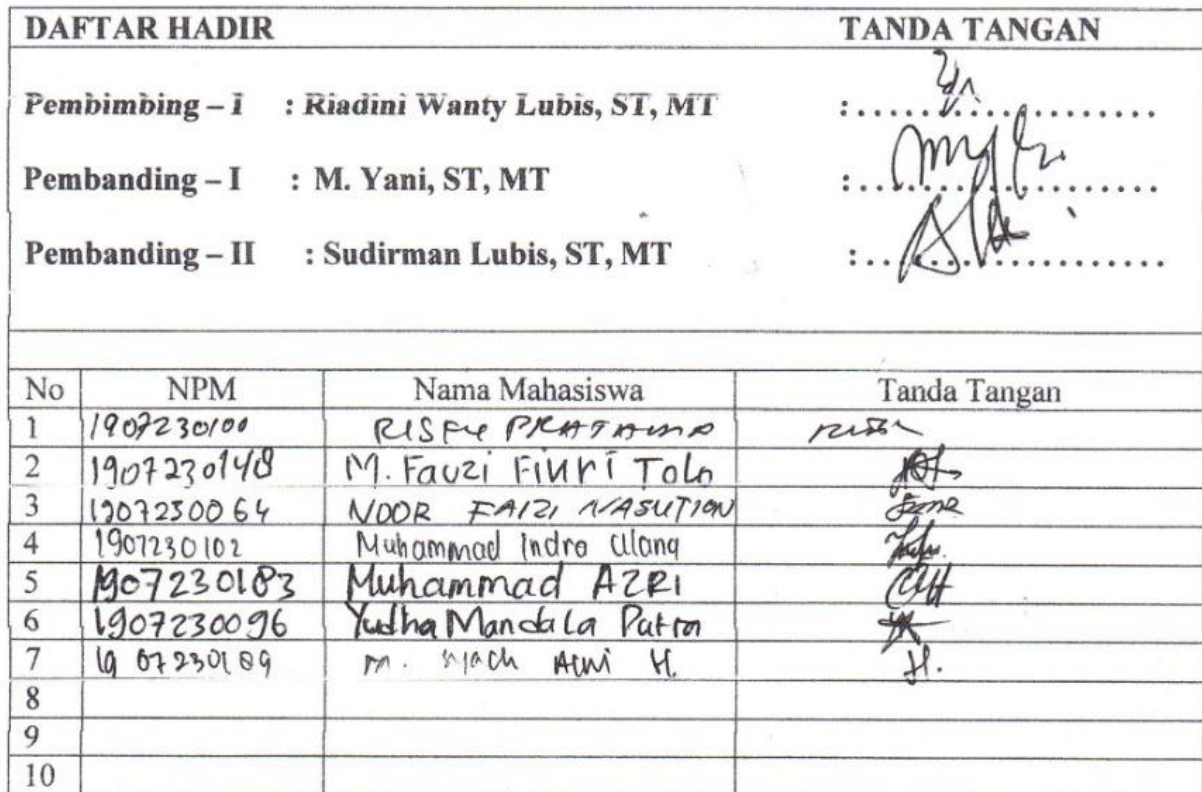 DAFTAR HADIR TANDA TANGAN
Pembimbing – I : Riadini Wanty Lubis, ST, MT :....................
Pembanding – I : M. Yani, ST, MT :....................
Pembanding – II : Sudirman Lubis, ST, MT :....................
No NPM Nama Mahasiswa Tanda Tangan
1 1907230100
2 1907230148 M. Fauzi
3 1907230064 NOOR FAIZI NASUTION
4 1907230102 Muhammad Indro
5 1907230183 Muhammad AZRI
6 1907230096 Yudha Mandala
7 1907230189 M. H. H.
8
9
10